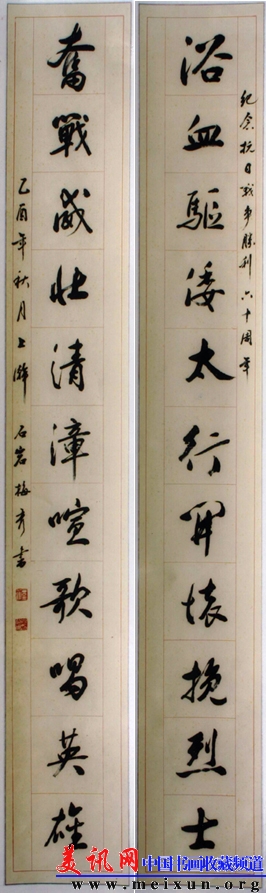 纪念抗日战争胜利六十周年
浴血驅倭太行開懷挽烈士
奮戰威壮清漳喧歌唱英雄
乙酉年秋月上澣 石岩梅秀書
美讯网 中国书画收藏频道
www.meixun.org